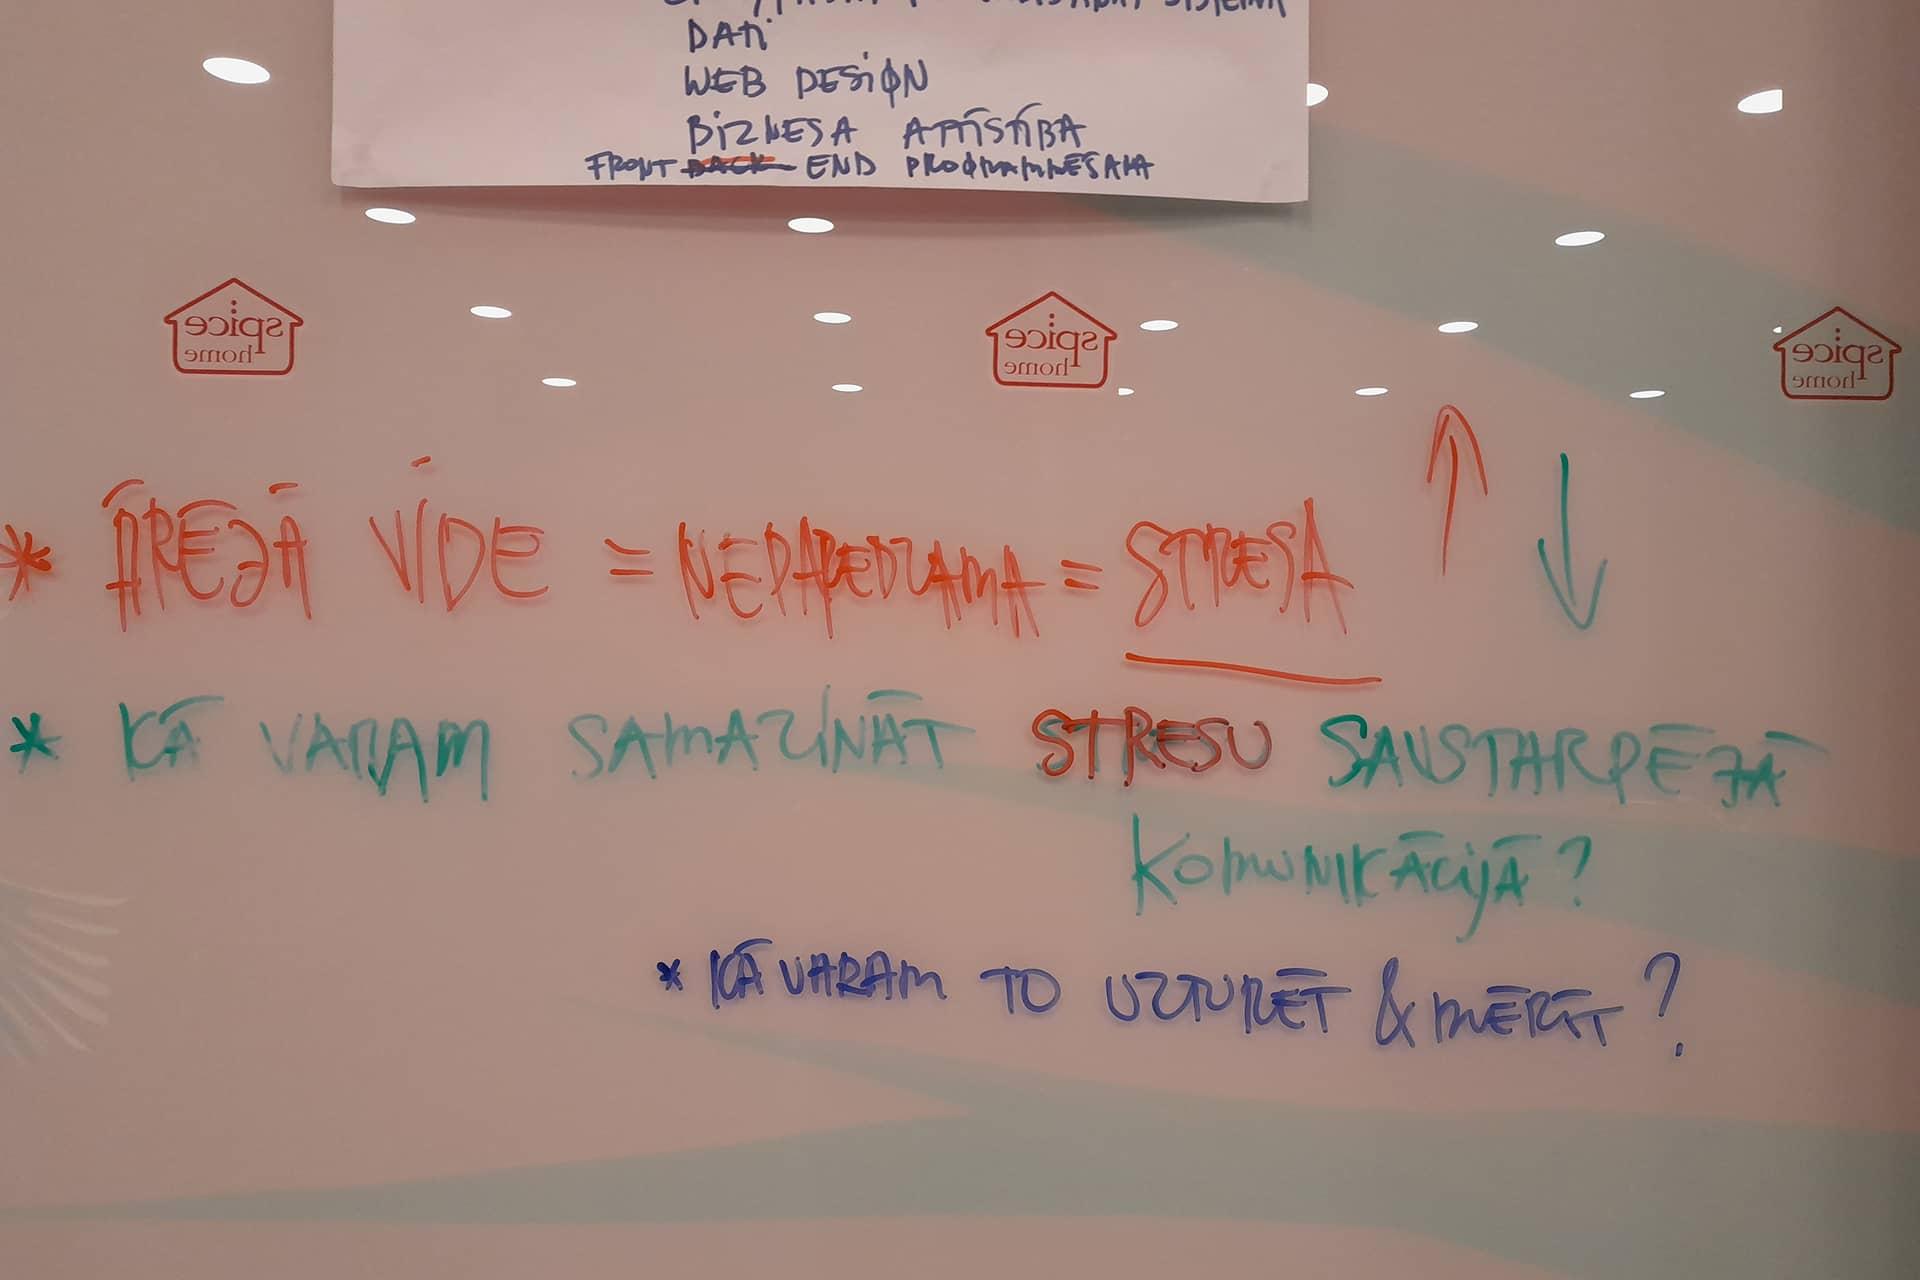 DATI
WEB DESIGN
BIZNESA ATTĪSTĪBA
FRONT BACK END PROGRAMMĒŠANA
spice home
spice home
spice home
* ĀRĒJĀ VIDE = NEPAREDZAMA = STRESA
* KĀ VARAM SAMAZINĀT STRESU SAVSTARPĒJĀ
KOMUNIKĀCIJĀ?
* KĀ VARAM TO UZTURĒT & MĒRĪT?